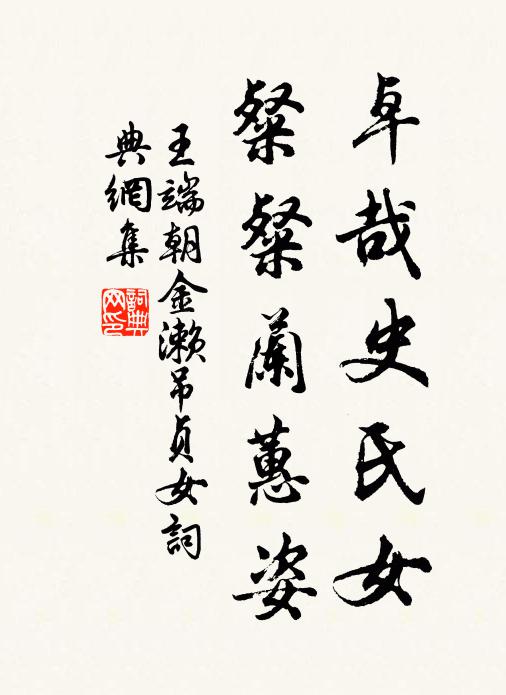 卓哉史氏女
粲粲蘭蕙姿
王端朝金瀨吊貞女詞
典網集
詞典網印